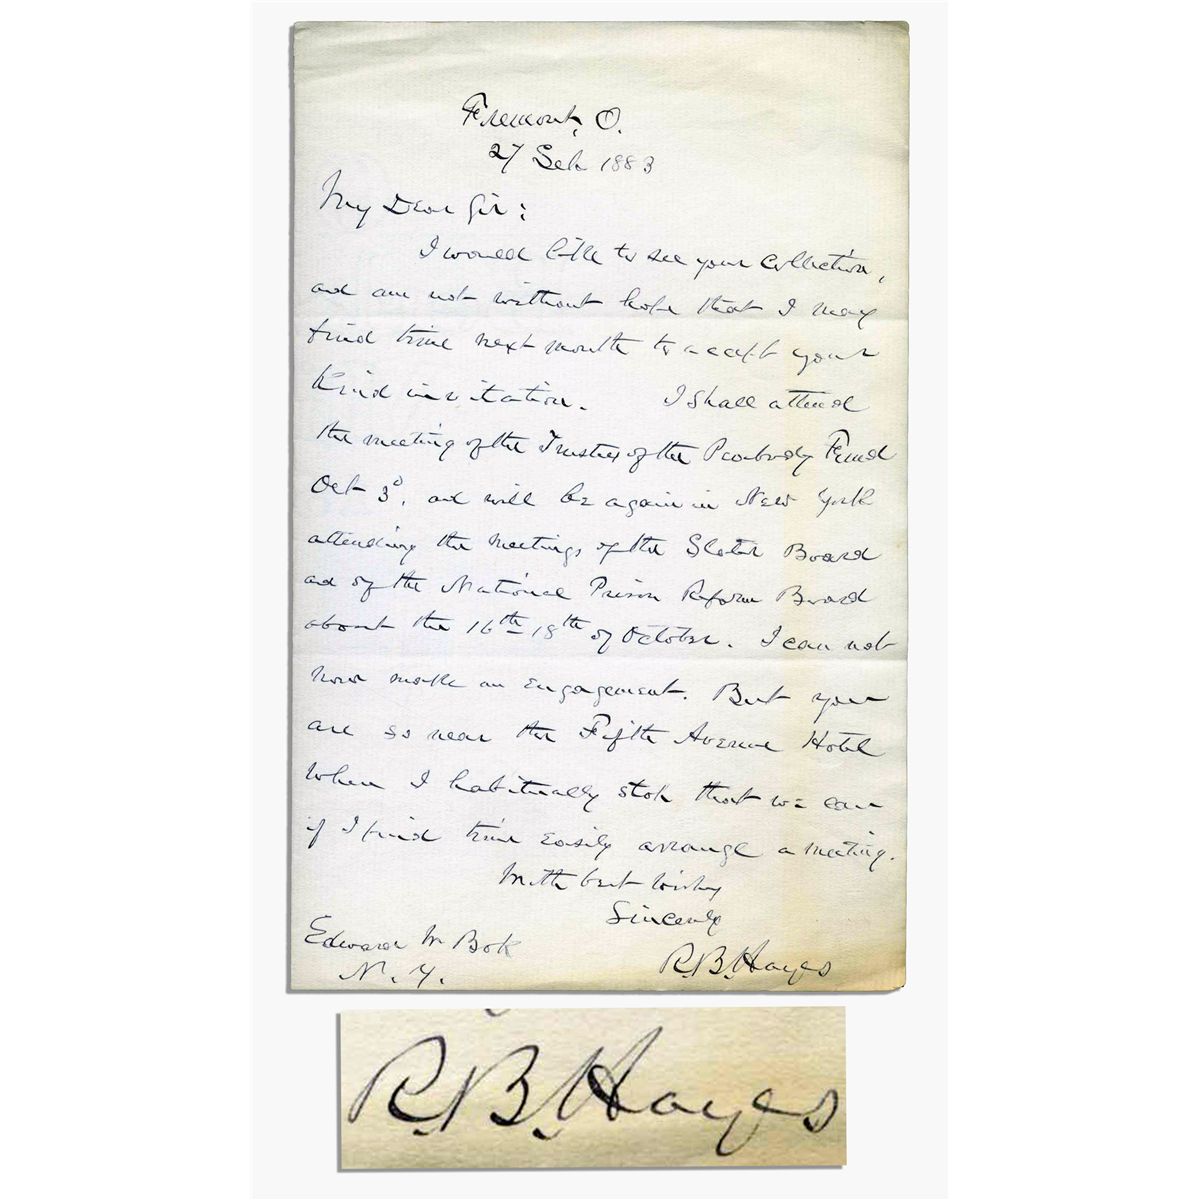 Fremont, O.
27 Sep 1883
My Dear Sir:
I would like to see your collection,
and am not without hope that I may
find time next month to accept your
kind invitation. I shall attend
the meeting of the Trustees of the Peabody Fund
Oct 3d, and will be again in New York
attending the meetings of the Slater Board
and of the National Prison Reform Board
about the 16th-18th of October. I can not
now make an engagement. But you
are so near the Fifth Avenue Hotel
where I habitually stop that we can
if I find time easily arrange a meeting.
With best wishes
Sincerely
R.B. Hayes
Edward W Bok
N.Y.
R.B. Hayes